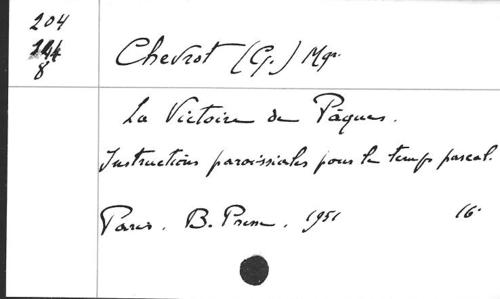 204
244
8
Chevrot (G.) Mgr.
La Victoire de Pâques.
Instructions paroissiales pour le temps pascal.
Paris. B. Presse. 1951 16°